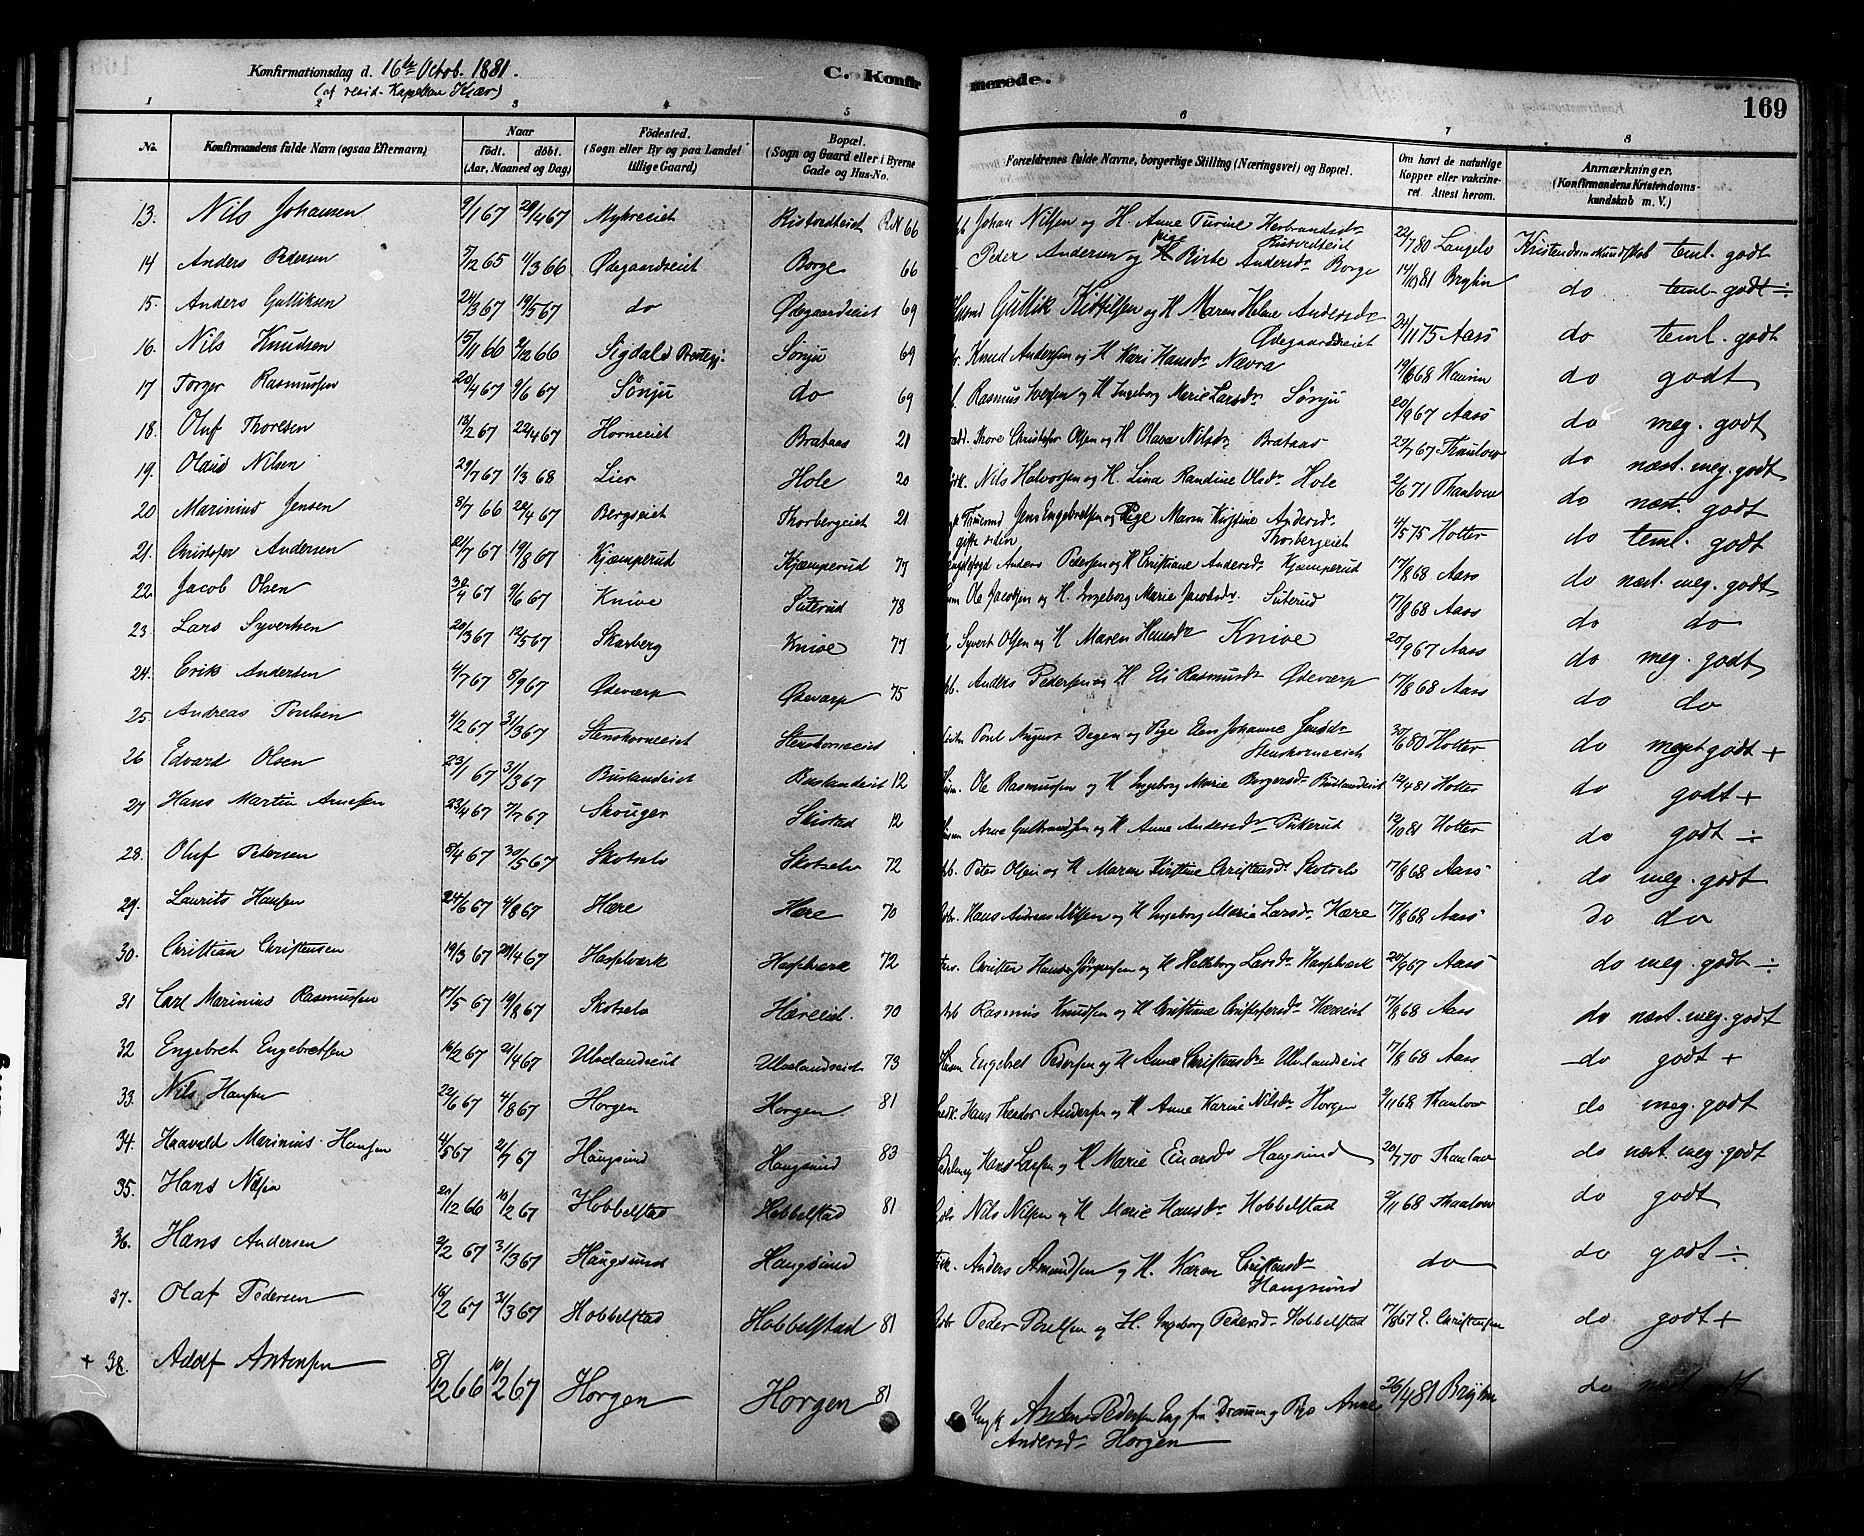 Konfirmationsdag d. 16de Octob. 1881.
(af resid. Kapellan Kiær)
C. Konfirmerede.
169
1 2 3 4 5 6 7 8
No.
Konfirmandens fulde Navn (ogsaa Efternavn)
Naar
födt. döbt.
(Aar, Maaned og Dag)
Födested.
(Sogn eller By og paa Landet tillige Gaard)
Bopæl.
(Sogn og Gaard eller i Byerne Gade og Hus-No.
Forældrenes fulde Navne, borgerlige Stilling (Næringsvei) og Bopæl.
Om havt de naturlige Kopper eller vakcineret. Attest herom.
Anmærkninger.
(Konfirmandens Kristendomskundskab m. V.)
13. Nils Johansen 9/1 67 28/4 67 Myhreeiet Ristvedteiet 66 Johan Nilsen og H. Anne Turine Herbrandsdr Ristvedteiet 22/7 80 Langelv Kristendomskundskab teml. godt
14 Anders Pedersen 5/12 65 11/3 66 Ødegaardseiet Borge 66 Peder Andersen og Pige Birte Andersdr Borge 14/10 81 Bryhn do teml. godt ÷
15. Anders Gulliksen 24/3 67 19/5 67 do Ødegaardseiet 69 Gullik Kittilsen og H Maren Helene Andersdr Ødegaardseiet 24/11 75 Aass do teml. godt
16. Nils Knudsen 15/11 66 2/12 66 Sigdals Prestegj. Sønju 69 Knud Andersen og H Kari Hansdr Nævra 19/6 68 Haurin do godt
17 Torger Rasmussen 20/4 67 9/6 67 Sønju do 69 Rasmus Iversen og H Ingeborg Marie Larsdr Sønju 20/9 67 Aass do meg. godt
18. Oluf Thoresen 13/2 67 22/4 67 Horneeiet Brataas 21 Thore Christofer Olsen og H Olava Nilsdr Brataas 22/7 67 Thaulow do næst. meg. godt
19. Olaus Nilsen 29/7 67 1/3 68 Lier Hole 20 Nils Halvorsen og H. Lina Randine Olsdr Hole 2/6 71 Thaulow do næst. godt
20 Marinius Jensen 8/7 66 28/4 67 Bergseiet Thorbergeiet 21 Jens Engebretsen og Pige Maren Kirstine Andersdr Thorbergeiet 4/5 75 Hotter do teml. godt
21. Christofer Andersen 21/7 67 19/8 67 Kjæmperud Kjæmperud 77 Anders Pedersen og H Christiane Andersdr Kjæmperud 17/8 68 Aass do næst. meg. godt
22. Jacob Olsen 30/4 67 9/6 67 Knive Suterud 78 Ole Jacobsen og H. Ingeborg Marie Jacobsdr Suterud 17/8 68 Aass do do
23. Lars Syvertsen 20/3 67 12/5 67 Skarberg Knive 77 Syvert Olsen og H Maren Hansdr Knive 20/9 67 Aass do meg. godt
24. Erik Andersen 4/7 67 8/9 67 Ødeværp Ødeværp 75 Anders Pedersen og H Eli Rasmusdr Ødeværp 17/8 68 Aass do do
25. Andreas Poulsen 4/2 67 31/3 67 Stenskorneeiet Stenskorneeiet Poul August Degen og Pige Elen Johanne Jensdr Stenskorneeiet 30/6 80 Hotter do meget godt +
26 Edvard Olsen 23/1 67 31/3 67 Buslandeiet Buslandeiet 12 Ole Rasmussen og H Ingeborg Marie Borgersdr Buslandeiet 12/4 81 Hotter do godt +
27 Hans Martin Arnesen 23/4 67 7/7 67 Skouger Skistad 12 Arne Gulbrandsen og H Anne Andersdr Pukerud 12/10 81 Hotter do godt ÷
28. Oluf Petersen 8/4 67 30/5 67 Skotselv Skotselv 72 Peter Olsen og H Maren Kirstine Christensdr Skotselv 17/8 68 Aass do meg. godt
29. Laurits Hansen 24/6 67 4/8 67 Hære Hære 70 Hans Andreas Nilsen og H Ingeborg Marie Larsdr Hære 17/8 68 Aass do do
30. Christian Christensen 19/3 67 28/4 67 Hasselværk Hasselværk 72 Christen Hans Jørgensen og H Helleborg Larsdr Hasselværk 20/9 67 Aass do meg. godt ÷
31 Carl Marinius Rasmussen 17/5 67 19/8 67 Skotselv Hæreeiet. 70 Rasmus Knudsen og H Christiane Christofersdr Hæreeiet 17/8 68 Aass do næst. meg. godt
32 Engebret Engebretsen 14/2 67 21/4 67 Ulvelandseiet Ulvelandseiet 73 Engebret Pedersen og H Anne Christensdr Ulvelandseiet 17/8 68 Aass do godt +
33. Nils Hansen 22/6 67 4/8 67 Horgen Horgen 81 Hans Theodor Andersen og H Anne Karine Nilsdr Horgen 2/11 68 Thaulow do meg. godt
34. Haavald Marinius Hansen 4/5 67 21/7 67 Haugsund Haugsund 83 Hans Larsen og H Marie Einarsdr Haugsund 20/7 70 Thaulow do næst. meg. godt
35. Hans Nilsen 21/12 66 10/2 67 Hobbelstad Hobbelstad 81 Nils Nilsen og H Marie Hansdr Hobbelstad 2/11 68 Thaulow do godt
36. Hans Andersen 2/2 67 31/3 67 Haugsund Haugsund Anders Amundsen og H. Karen Christensdr Haugsund do do godt ÷
37. Olaf Pedersen 16/2 67 31/3 67 Hobbelstad Hobbelstad 81 Peder Poulsen og H. Ingeborg Pedersdr Hobbelstad 17/8 67 E. Christensen do godt +
+ 38. Adolf Antonsen 8/12 66 10/2 67 Horgen Horgen 81 Ungk Anton Pedersen Eng fra Drammen og Pige Anne Andersdr Horgen 26/4 81 Bryhn do næst godt